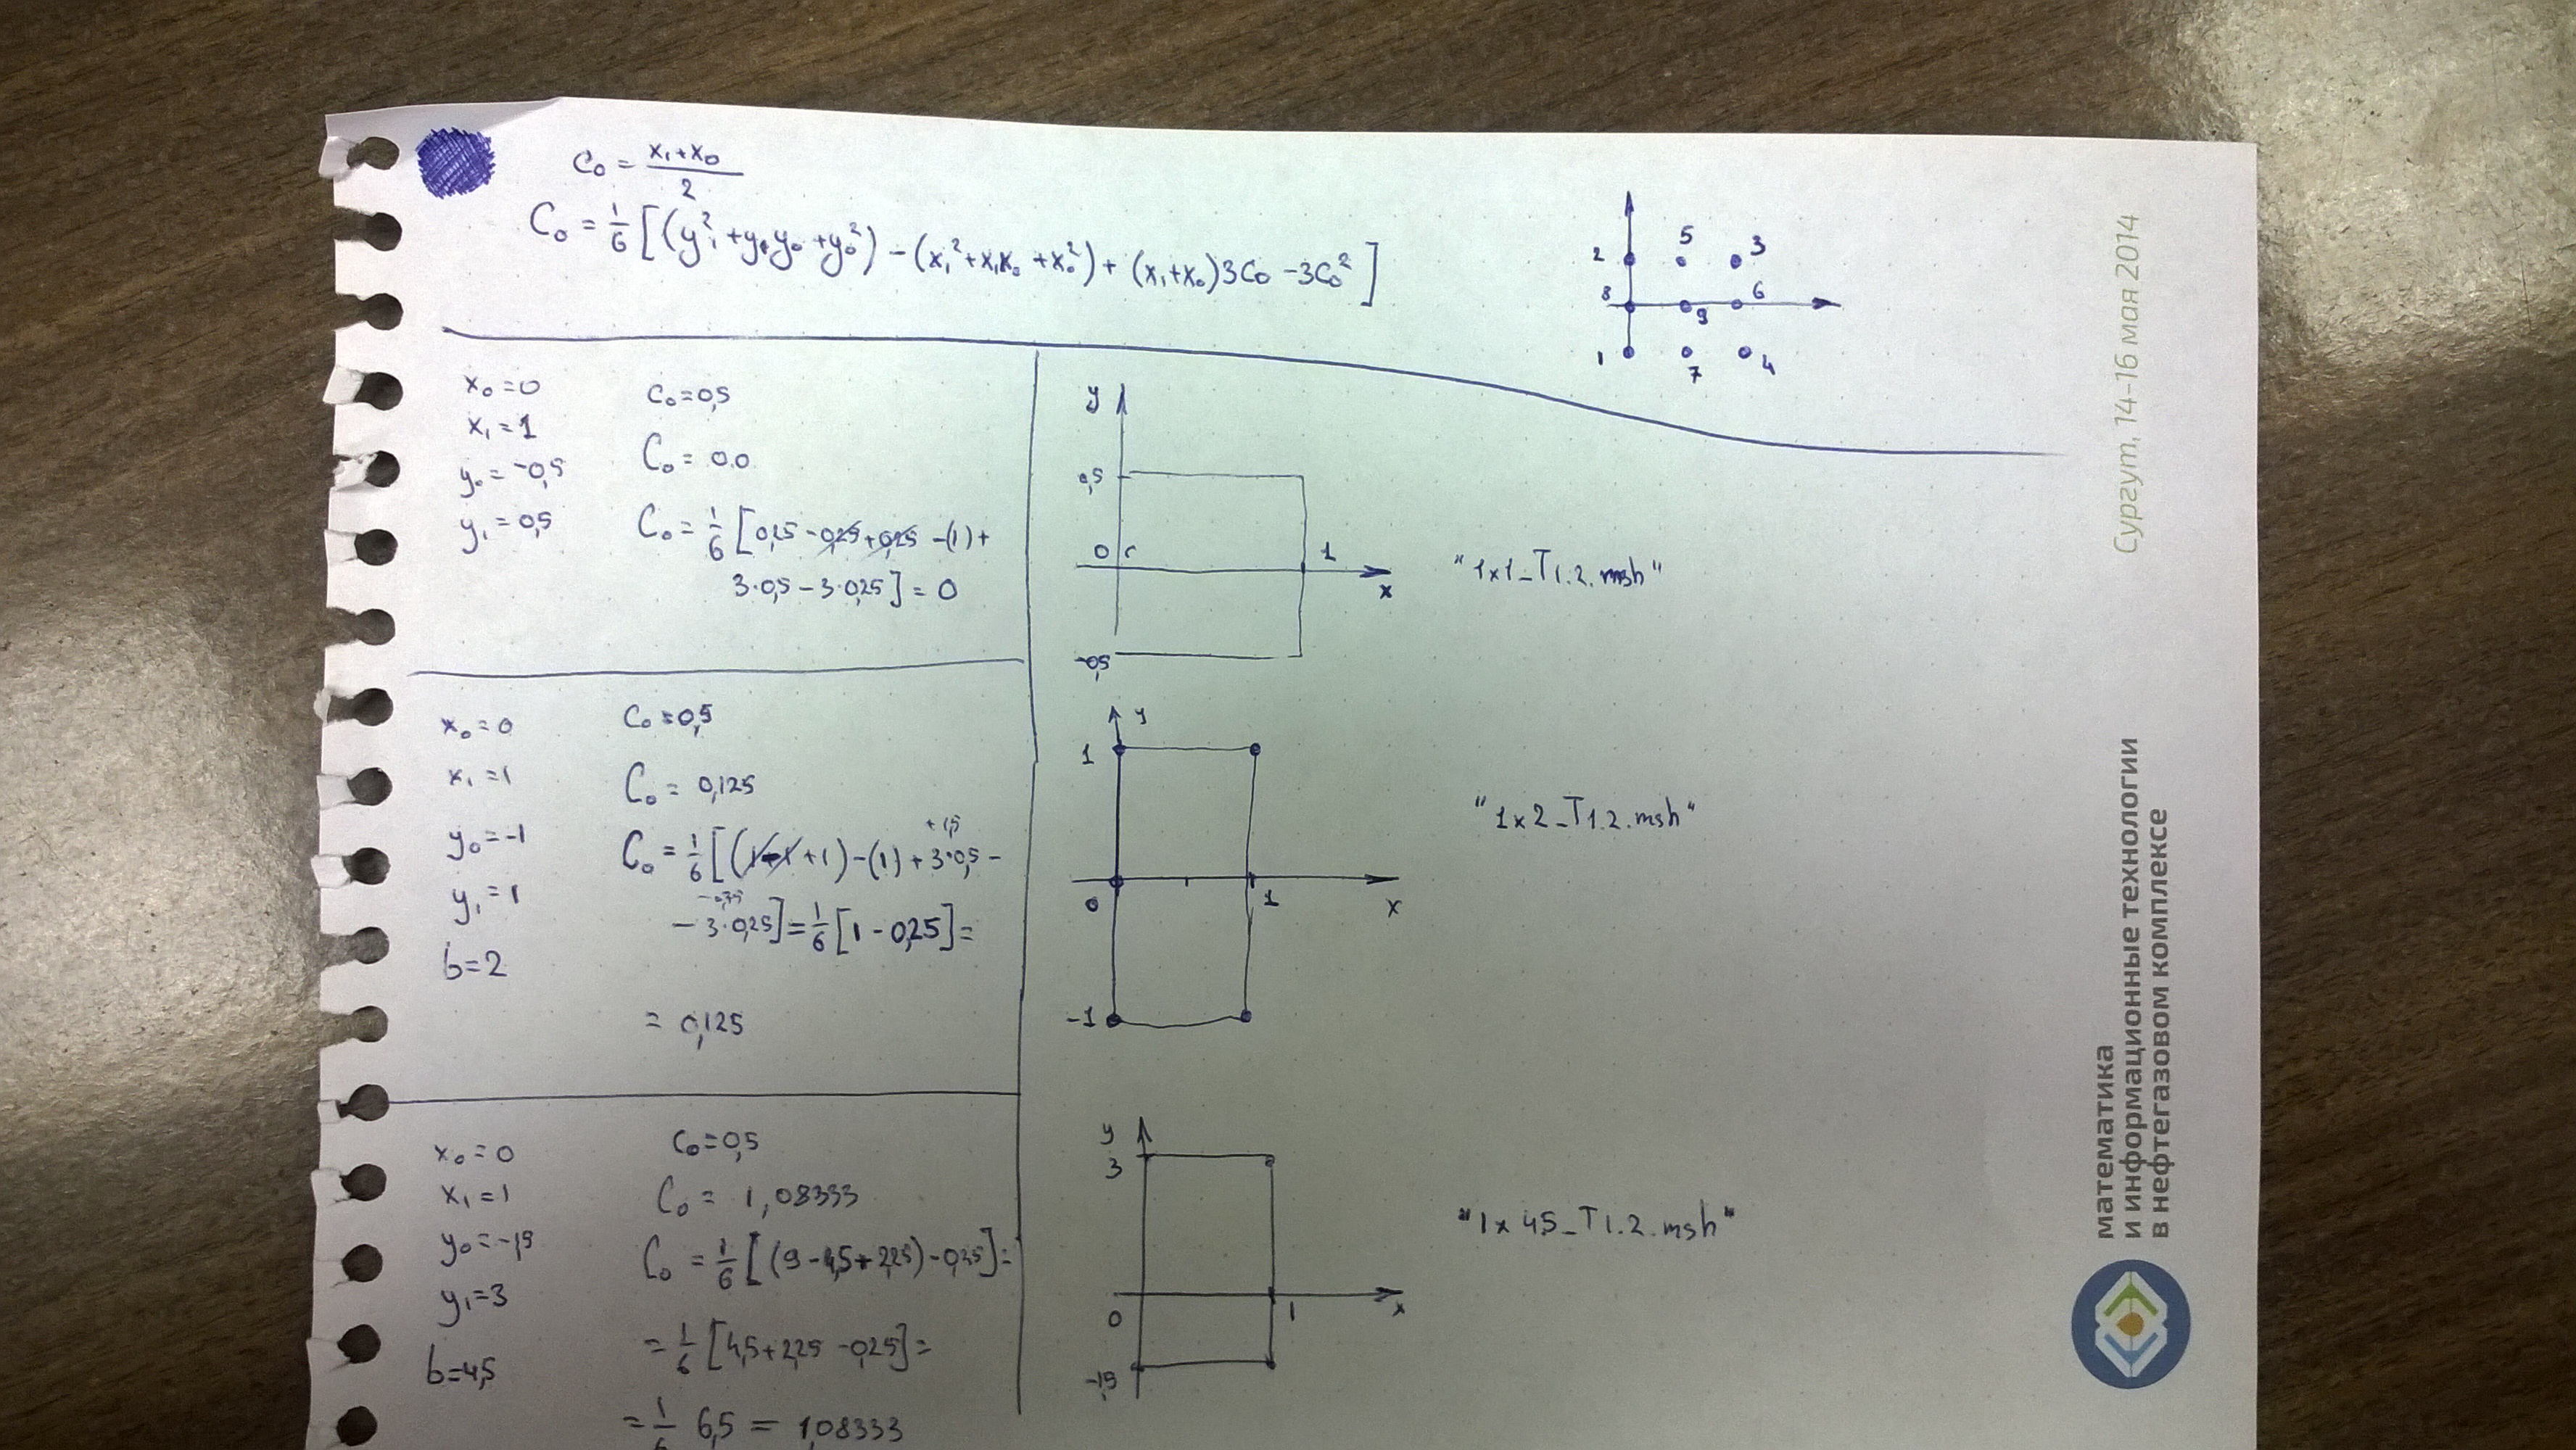 c₀ = (x₁+x₀)/2
C₀ = 1/6 [(y₁² + y₁y₀ + y₀²) − (x₁² + x₁x₀ + x₀²) + (x₁+x₀)3c₀ − 3c₀²]
5
2 3
8 6
9
1 4
7
x₀ = 0
x₁ = 1
y₀ = −0,5
y₁ = 0,5
c₀ = 0,5
C₀ = 0.0
C₀ = 1/6 [0,25 − 0,25 + 0,25 − (1) +
3·0,5 − 3·0,25] = 0
y
0,5
0
1
x
−0,5
"1x1_T1.2.msh"
x₀ = 0
x₁ = 1
y₀ = −1
y₁ = 1
b = 2
c₀ = 0,5
C₀ = 0,125
+1,5
C₀ = 1/6 [(1−1+1) − (1) + 3·0,5 −
−0,75
− 3·0,25] = 1/6 [1 − 0,25] =
= 0,125
y
1
0
1
x
−1
"1x2_T1.2.msh"
x₀ = 0
x₁ = 1
y₀ = −1,5
y₁ = 3
b = 4,5
c₀ = 0,5
C₀ = 1,08333
C₀ = 1/6 [(9 − 4,5 + 2,25) − 0,25] =
= 1/6 [4,5 + 2,25 − 0,25] =
= 1/6 6,5 = 1,08333
y
3
0
1
x
−1,5
"1x4.5_T1.2.msh"
Сургут, 14–16 мая 2014
математика
и информационные технологии
в нефтегазовом комплексе